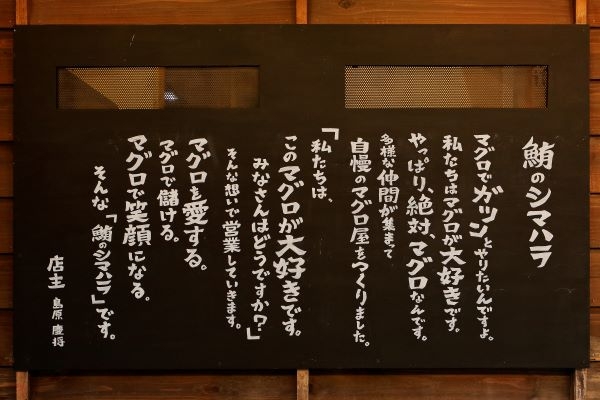 鮪のシマハラ
マグロでガツンとやりたいんですよ。
私たちはマグロが大好きです。
やっぱり、絶対、マグロなんです。
多様な仲間が集まって
自慢のマグロ屋をつくりました。
「私たちは、
このマグロが大好きです。
みなさんはどうですか?」
そんな想いで営業していきます。
マグロを愛する。
マグロで儲ける。
マグロで笑顔になる。
そんな「鮪のシマハラ」です。
店主 島原慶将